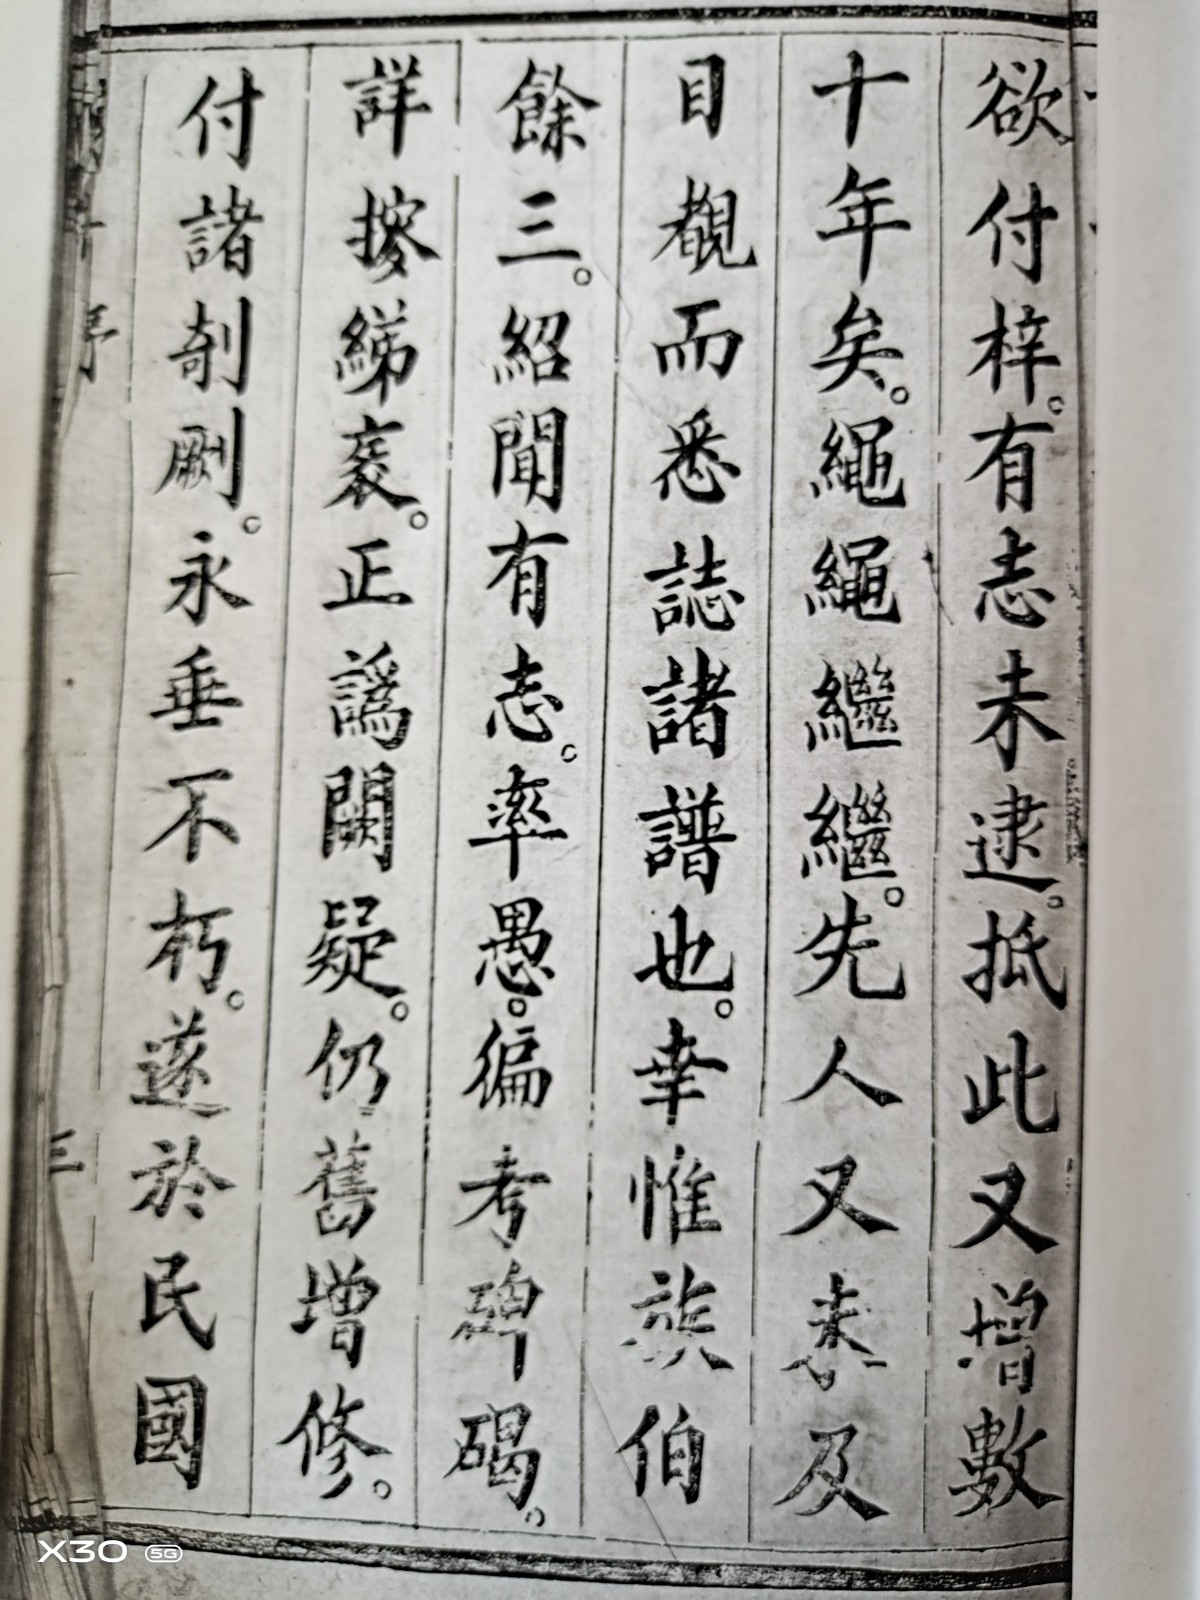 欲付梓。有志未逮。抵此又增數
十年矣。繩繩繼繼。先人又未及
目覩而悉誌諸譜也。幸惟族伯
餘三。紹聞有志。率愚。徧考碑碣。
詳摉綈袠。正譌闕疑。仍舊增修。
付諸剞劂。永垂不朽。遂於民國
序
三
X30 5G